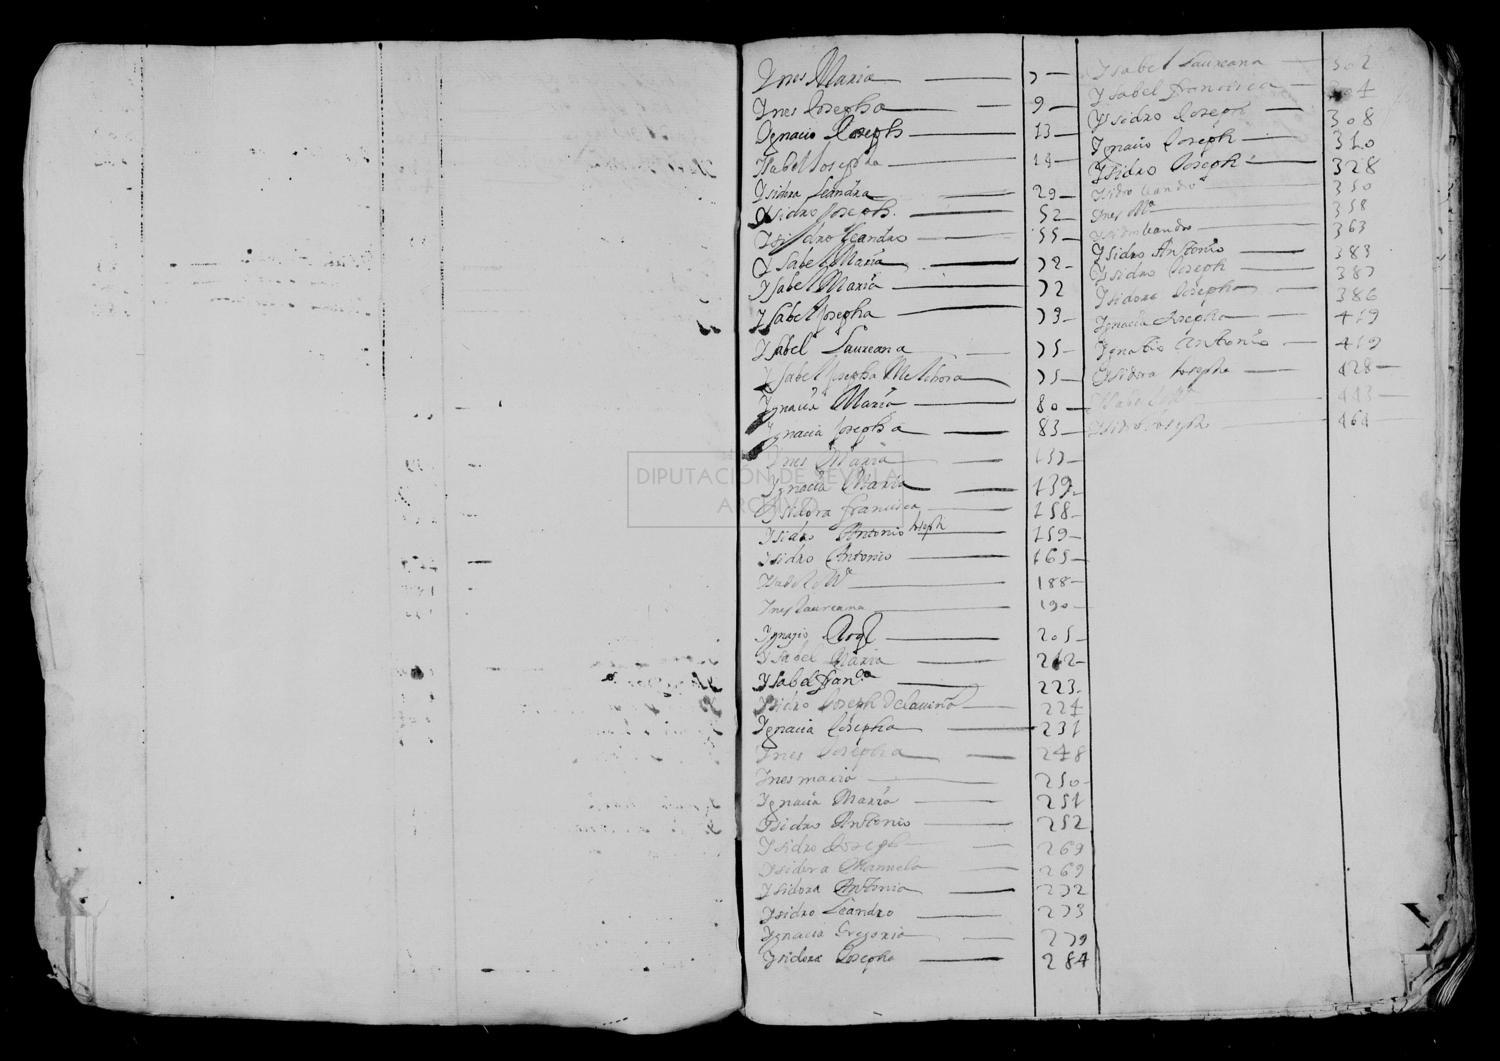 Ynes Maria 7
Ynes Josepha 9
Ygnacio Joseph 13
Ysabel Josepha 14
Ysidra Leandra 29
Ysidro Joseph 52
Ysidro Leandro 55
Ysabel Maria 72
Ysabel Maria 72
Ysabel Josepha 73
Ysabel Laureana 75
Ysabel Josepha Melchora 75
Ygnacia Maria 80
Ygnacia Josepha 83
Ynes Maria 137
Ygnacia Maria 139
Ysidora francisca 158
Ysidro Antonio Joseph 159
Ysidro Antonio 165
Ysabel Mª 188
Ynes Laureana 190
Ygnazio 205
Ysabel Maria 212
Ysabel franca 223
Ysidro Joseph 224
Ygnacia Josepha 231
Ynes Josepha 248
Ynes maria 250
Ygnacia Maria 251
Ysidro Antonio 252
Ysidro Joseph 269
Ysidora Manuela 269
Ysidora Antonia 272
Ysidro Leandro 273
Ygnacia Gregoria 279
Ysidora Josepha 284
Ysabel Laureana 302
Ysabel francisca
Ysidro Joseph 308
Ygnacio Joseph 310
Ysidro Joseph 328
Ysidro Leandro 350
Ynes Mª 358
Ysidro Leandro 363
Ysidro Antonio 383
Ysidro Joseph 387
Ysidora Josepha 386
Ygnacia Josepha 419
Ygnatio Antonio 419
Ysidora Josepha 428
Ysabel Mª 443
Ysidro Joseph 464
DIPUTACIÓN DE SEVILLA
ARCHIVO